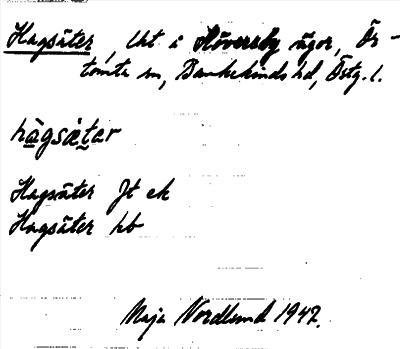 Hagsäter, lht i Höversby ägor, Ör-
tomta sn, Bankekinds hd, Östg. l.
hàgsætar
Hagsäter Jt ek
Hagsäter hb
Maja Nordlund 1947.